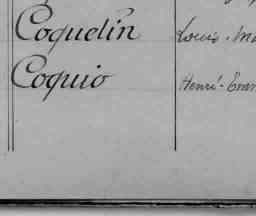 Coquelin Louis-Ma
Coquio Henri-Eran